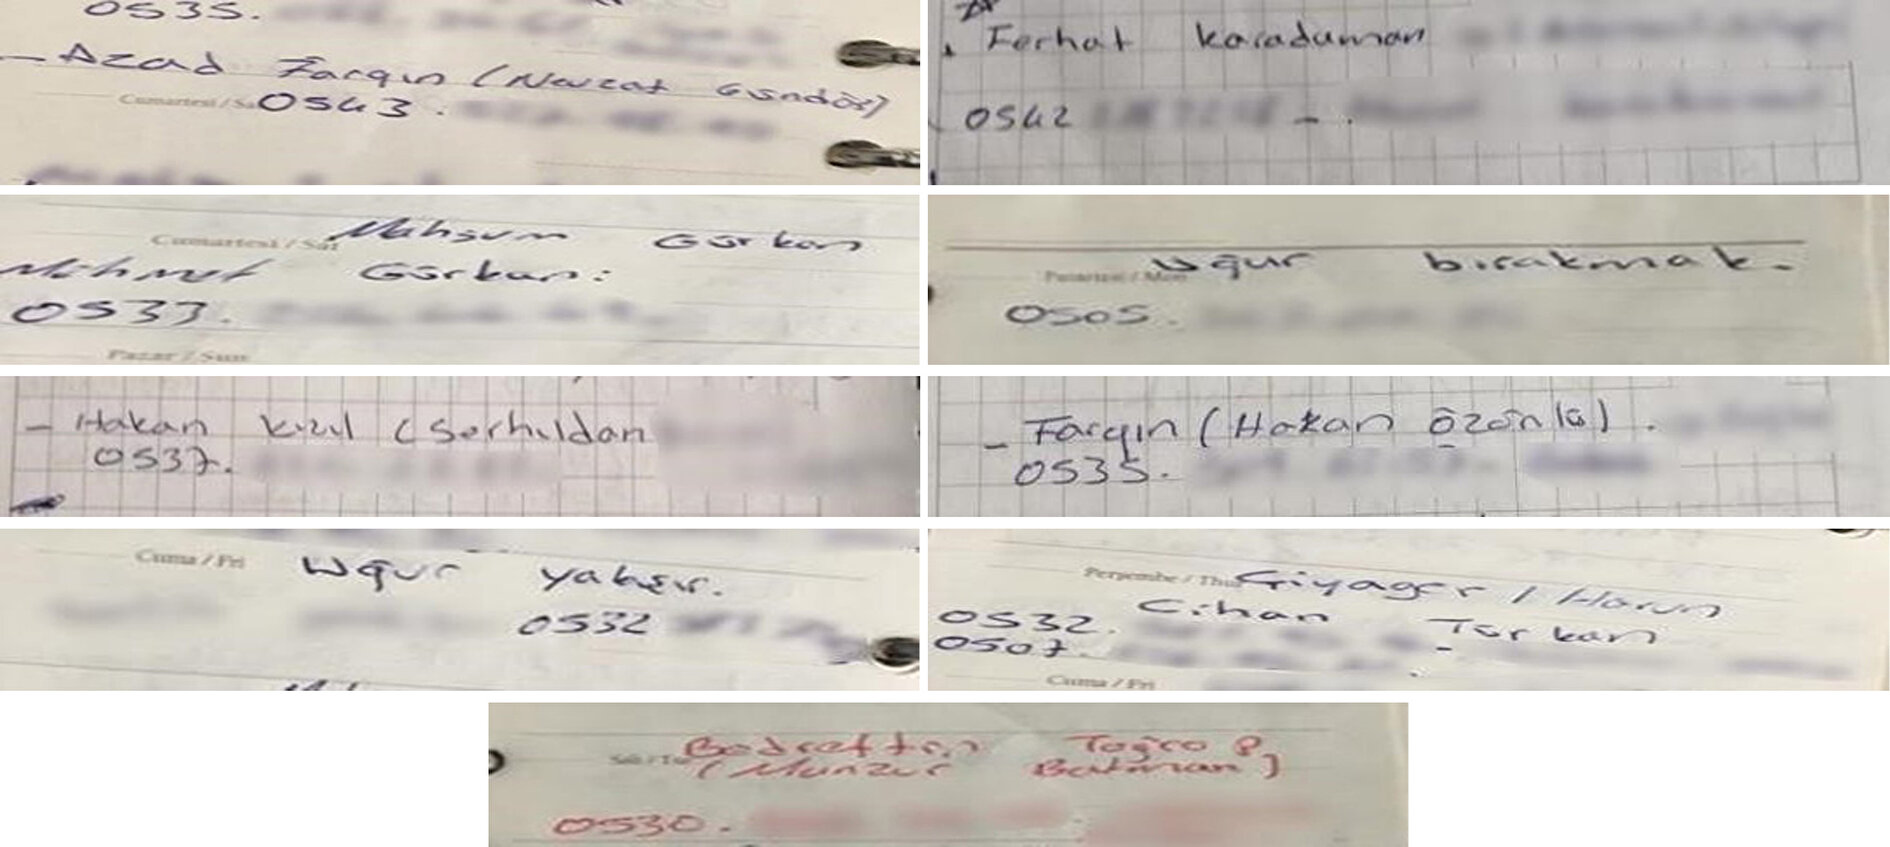 0535.
- Azad Farqin (Nevzat Gündör)
Cumartesi / Sa
0543.
. Ferhat karaduman
0542 - .
Cumartesi / Sat
Mahsum Gürkan
Mehmet Gürkan:
0533.
Pazar / Sun
Pazartesi / Mon
Uğur bırakmak.
0505.
- Hakan kızıl (Serhıldan
0537.
- Farqin (Hakan özönlü).
0535.
Cuma / Fri
Uğur yakışır.
0532
Perşembe / Thu
Giyager / Harun
0532. Cihan Türkan
0507. -
Cuma / Fri
Bedrettin Toğro P
(Munzur Batman)
0530.